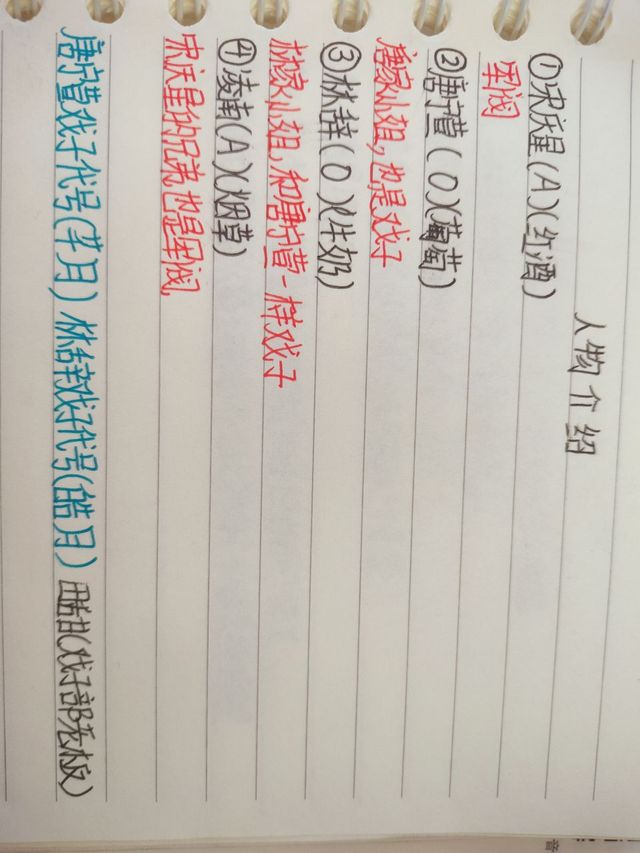 人物介绍
①宋庆星(A)(红酒)
军阀
②唐宁萱(O)(葡萄)
唐家小姐,也是戏子
③林辞(O)(牛奶)
林家小姐,和唐宁萱一样戏子
④凌南(A)(烟草)
宋庆星的兄弟,也是军阀,
唐宁萱戏子代号(芊月) 林辞戏子代号(皓月) (戏子部老板)